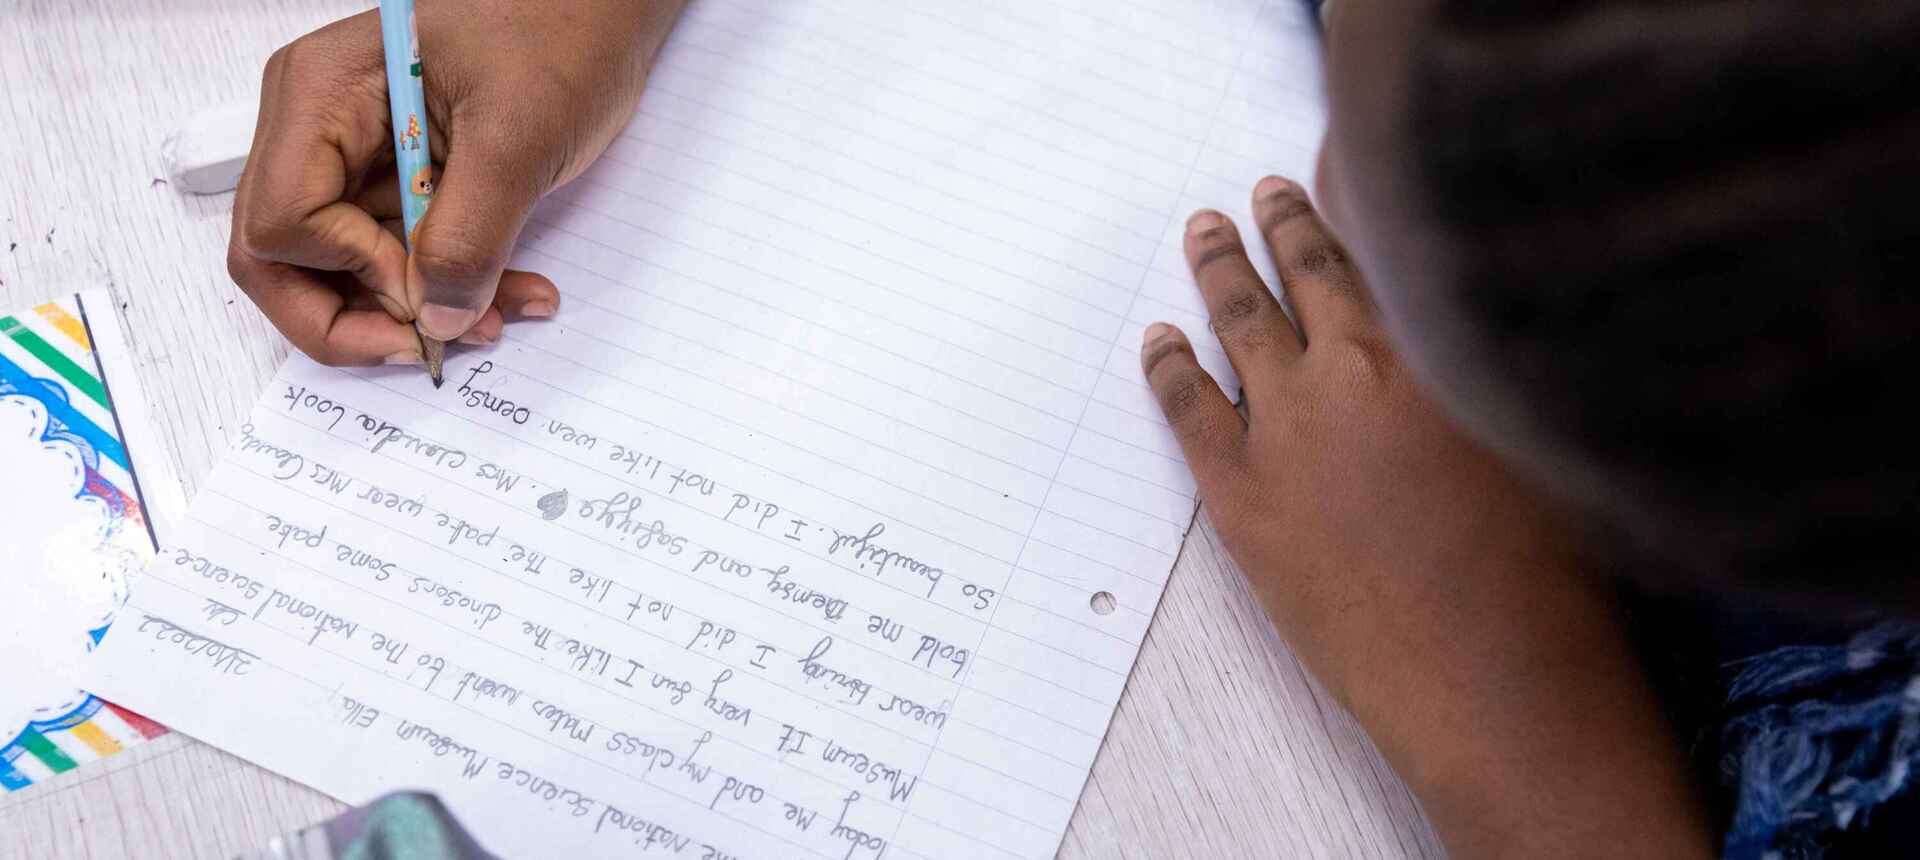 National Science Museum Ella,
21/10/2022
Today Me and my class mates went to The National Science
Museum It very fun I like The dinosors Some pake
wear boring I did not like The pake wear Mrs
told me Demsy and safiyya . Mrs claudia Look
So beautiful. I did not like wen Demsy